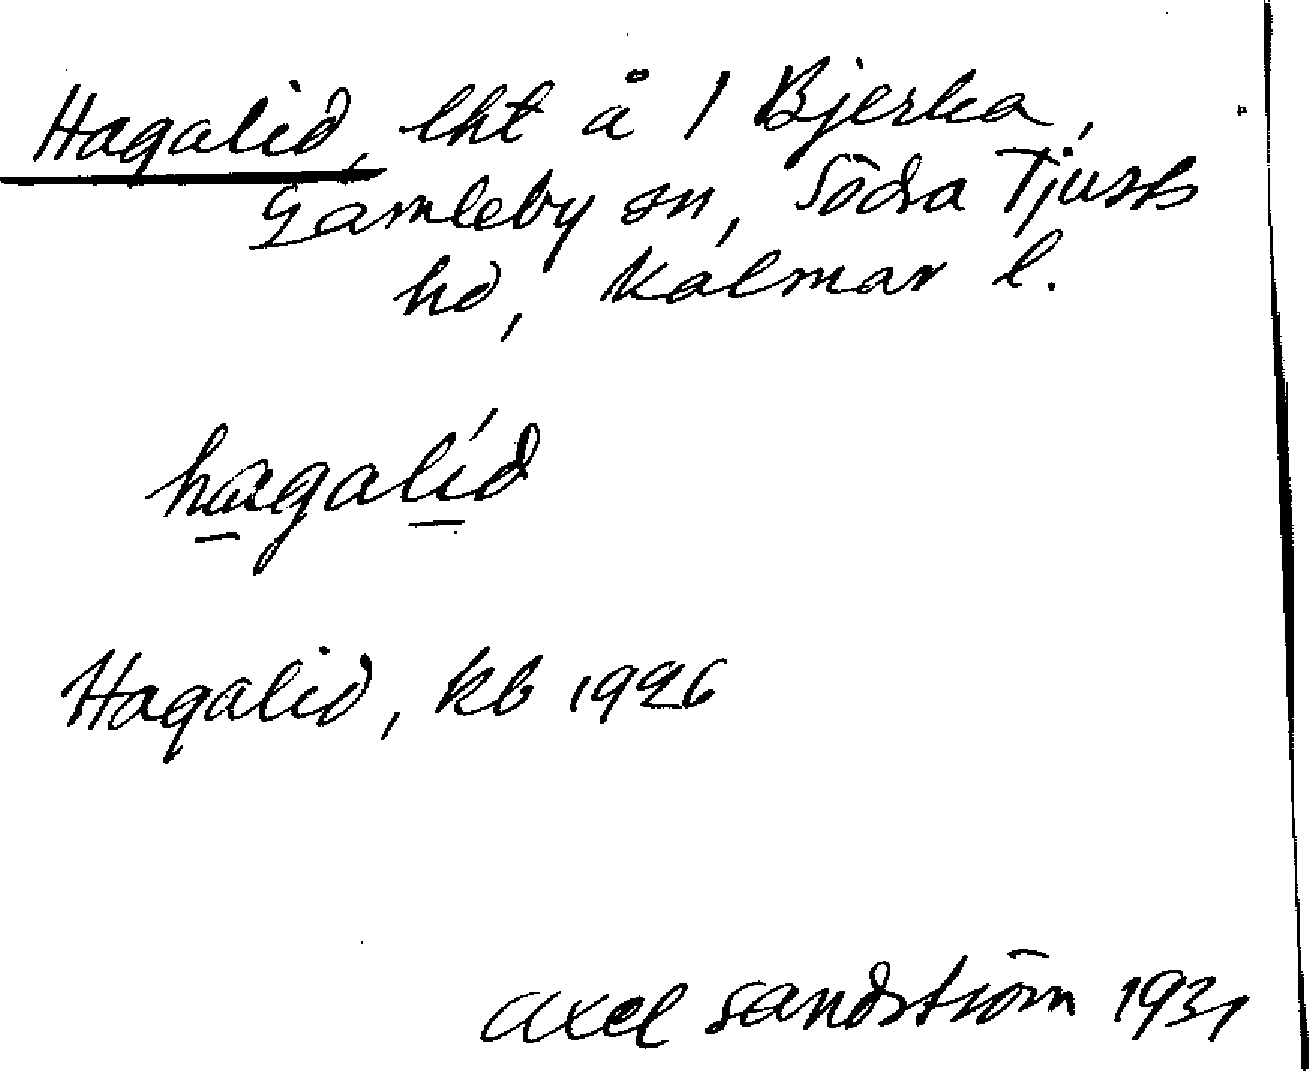 Hagalid, lht å 1 Bjerka,
Gamleby sn, Södra Tjusts
hd, Kalmar l.
hagalid
Hagalid, kb 1926
Axel Sandström 1931